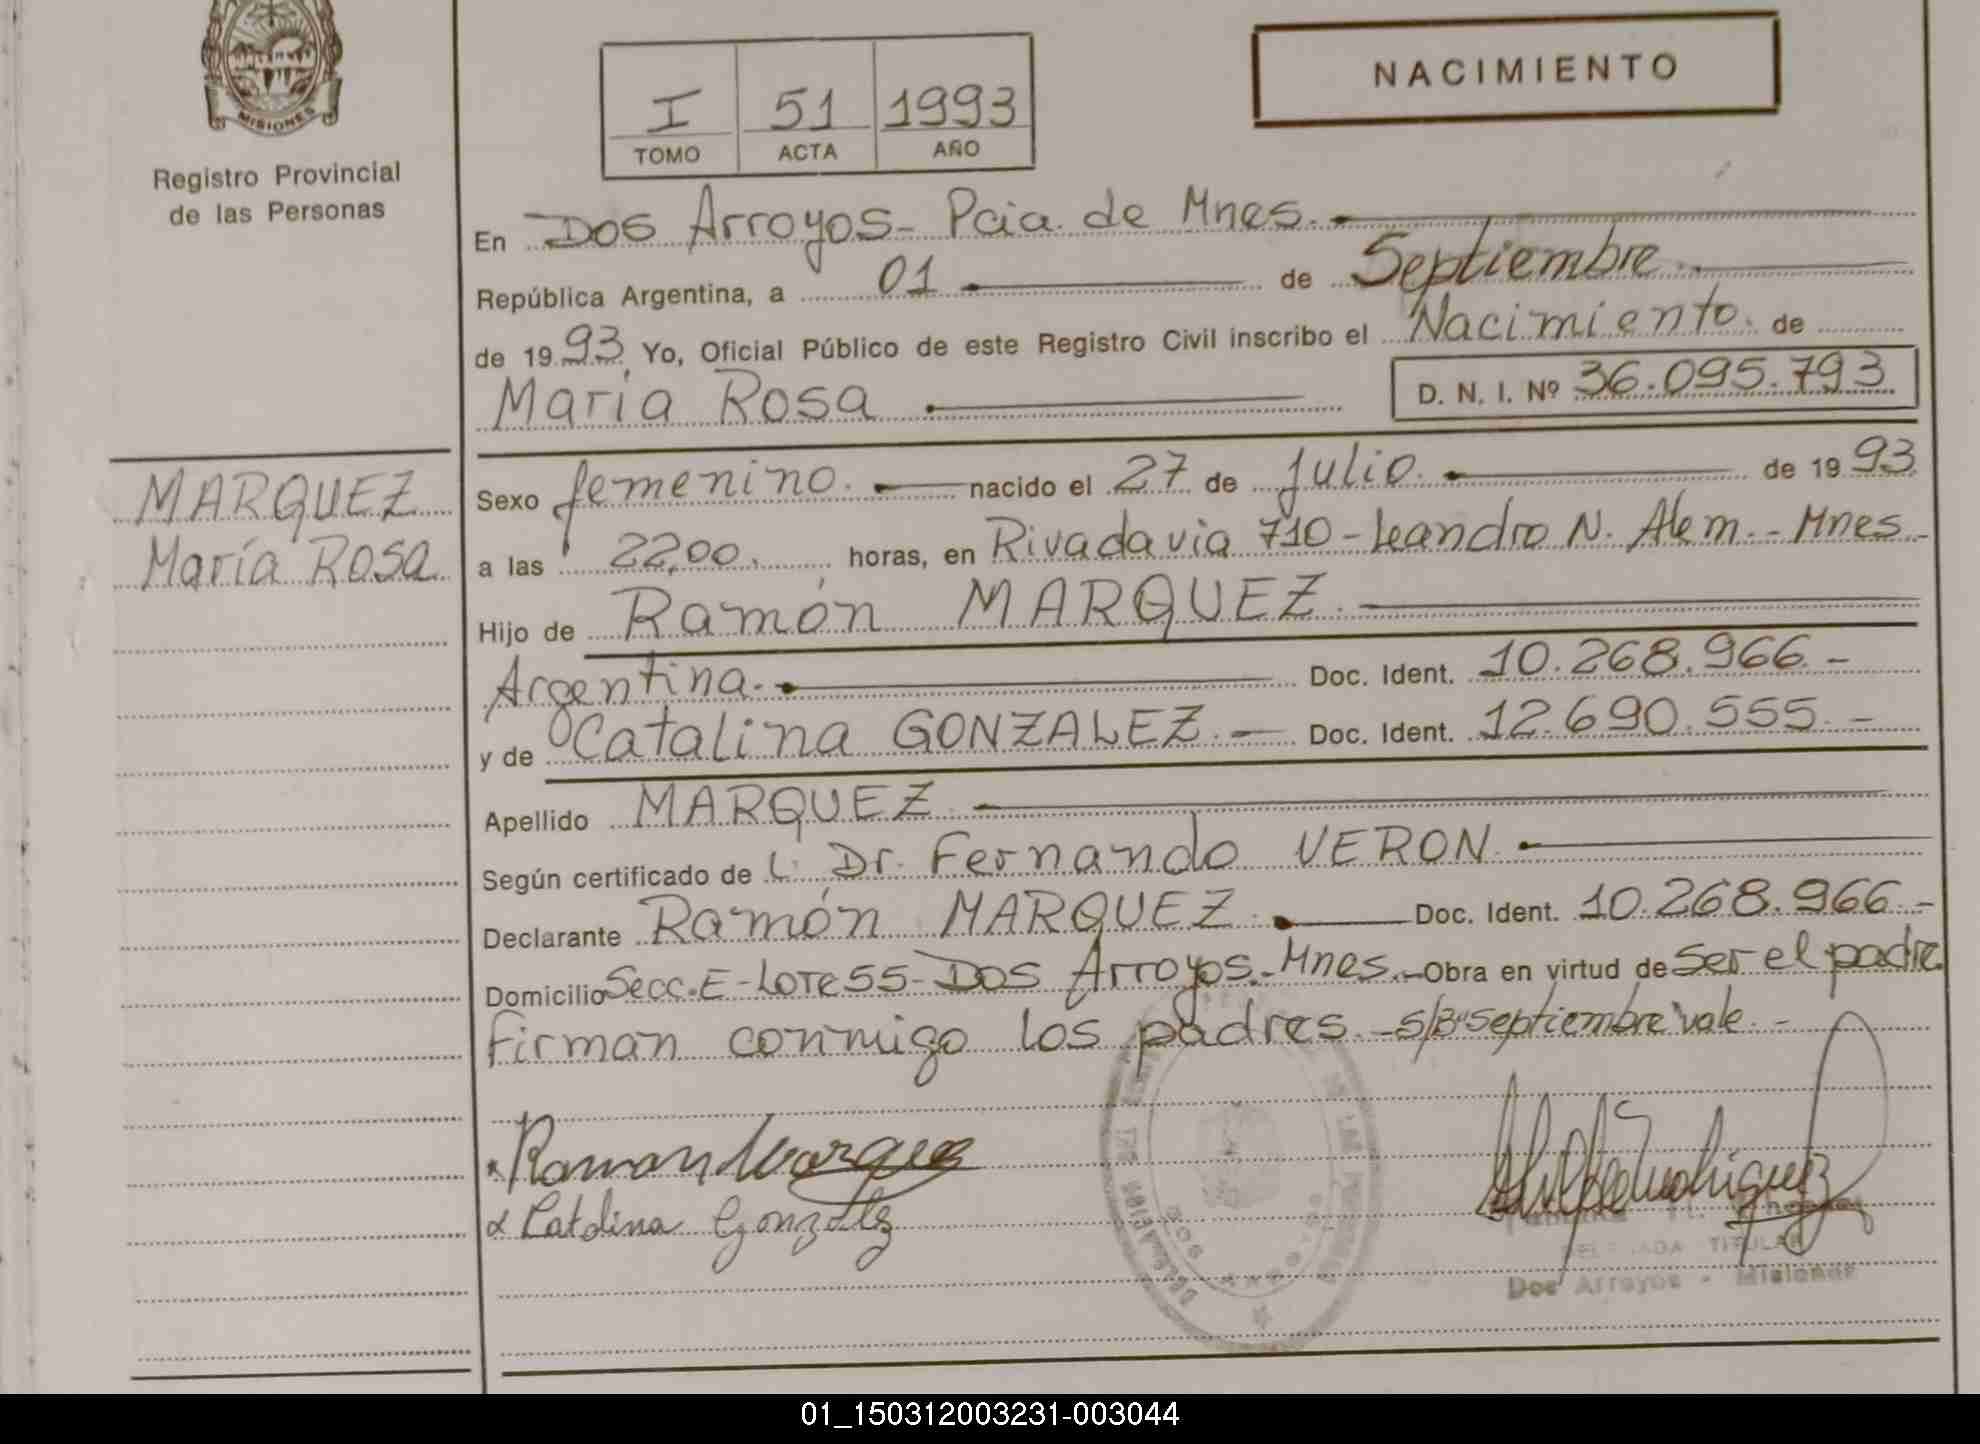 MISIONES
Registro Provincial
de las Personas
I 51 1993
TOMO ACTA AÑO
NACIMIENTO
En Dos Arroyos - Pcia. de Mnes.
República Argentina, a 01 de Septiembre
de 1993 Yo, Oficial Público de este Registro Civil inscribo el Nacimiento de
María Rosa D. N. I. Nº 36.095.793
MARQUEZ
María Rosa
Sexo femenino. nacido el 27 de julio. de 1993
a las 22,00. horas, en Rivadavia 710 - Leandro N. Alem. - Mnes -
Hijo de Ramón MARQUEZ.
Argentina. Doc. Ident. 10.268.966 -
y de Catalina GONZALEZ. - Doc. Ident. 12.690.555. -
Apellido MARQUEZ
Según certificado de L. Dr. Fernando VERON.
Declarante Ramón MARQUEZ. Doc. Ident. 10.268.966. -
Domicilio Secc. E - Lote 55 - Dos Arroyos. - Mnes. - Obra en virtud de ser el padre
Firman conmigo los padres. - S/B "Septiembre" vale. -
Ramon Marquez
Catalina Gonzalez
DELEGADA TITULAR
Dos Arroyos - Misiones
01_150312003231-003044